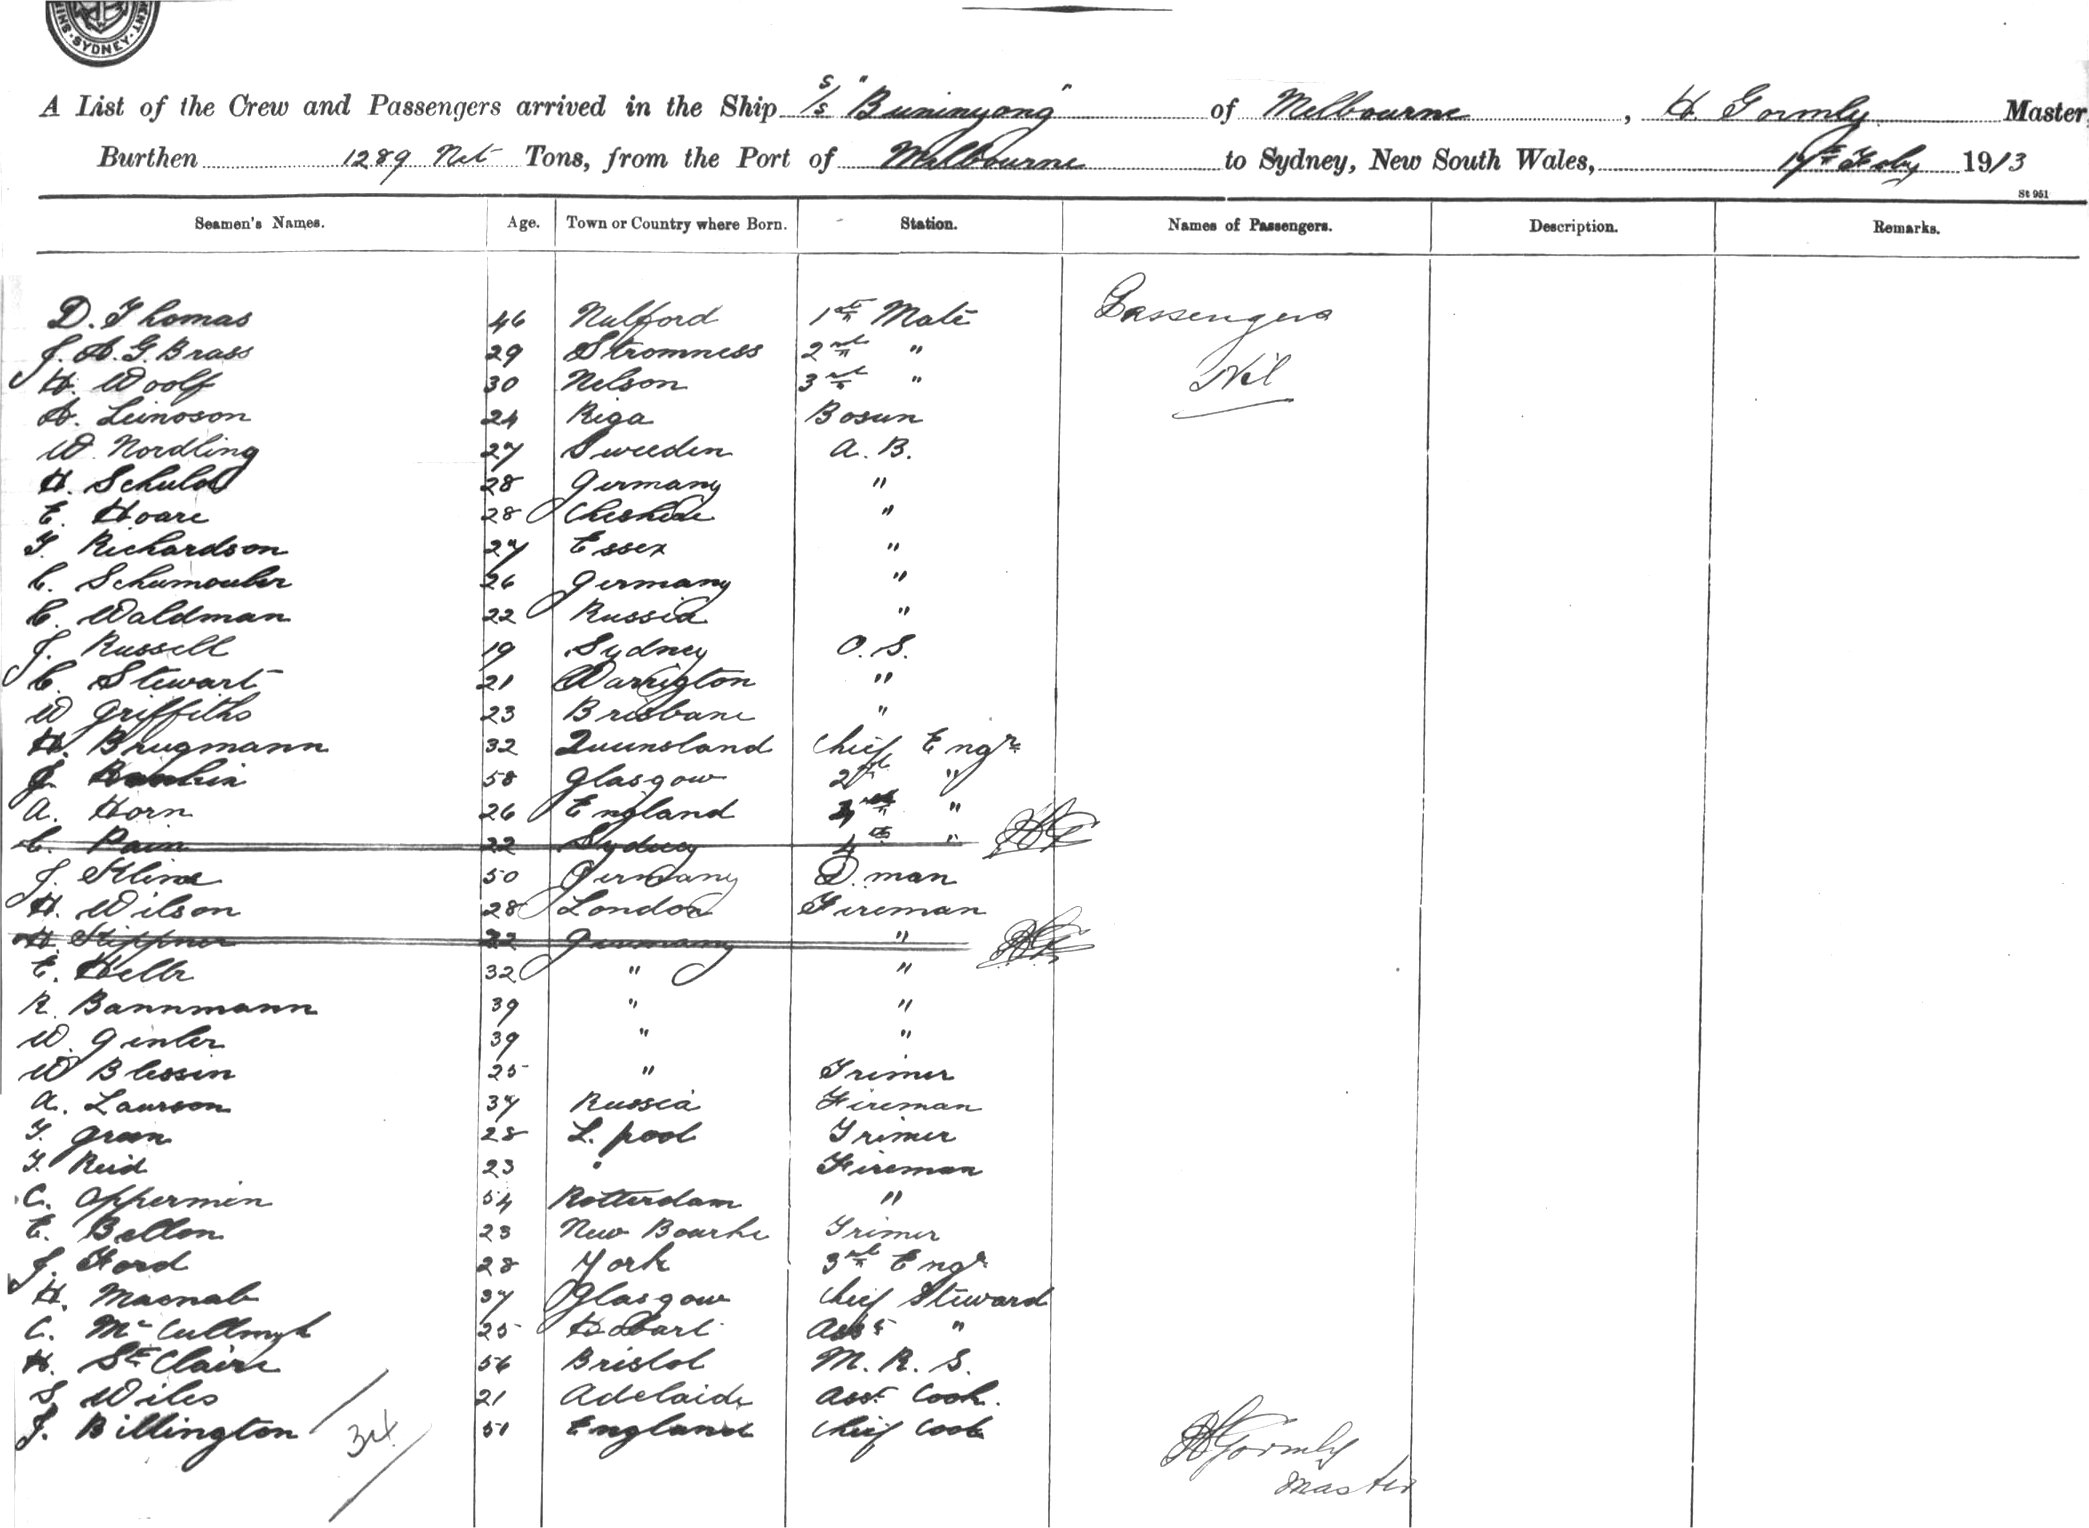 SYDNEY
A List of the Crew and Passengers arrived in the Ship S/S "Buninyong" of Melbourne, H. Gormly Master,
Burthen 1289 Net Tons, from the Port of Melbourne to Sydney, New South Wales, 17th Feby 1913
St 951
Seamen's Names. Age. Town or Country where Born. Station. Names of Passengers. Description. Remarks.
D. Thomas 46 Mulford 1st Mate Passengers
J. A. G. Brass 29 Stromness 2nd "
H. Woolf 30 Nelson 3rd " Nil
A. Leinoson 24 Riga Bosun
W Nordling 27 Sweeden A. B.
H. Schuld 28 Germany "
E. Hoare 28 Cheshire "
T. Richardson 27 Essex "
C. 26 Germany "
C. Waldman 22 Russia "
J. Russell 19 Sydney O. S.
C. Stewart 21 Warrigton "
W Griffiths 23 Brisbane "
H. Brugmann 32 Queensland Chief Engr
J. 58 Glasgow 2nd "
A. Horn 26 England "
C. Pain 22 Sydney 4th " HG
J. Kline 50 Germany D. man
H. Wilson 28 London Fireman
H. 22 Germany " HG
E. Helle 32 " "
R. Bannmann 39 " "
W. Ginler 39 " "
W Blessin 25 " Trimer
A. Laurson 37 Russia Fireman
T. Green 28 L. pool Trimer
T. Reid 23 " Fireman
C. Oppermin 54 Rotterdam "
E. Bellon 23 New Bourke Trimer
J. Ford 28 York 3rd Engr
H. Macnab 37 Glasgow Chief Steward
C. 25 Hobart Asst "
H. St Claire 56 Bristol M. R. S.
S. Wiles 21 Adelaide Asst Cook.
J. Billington 51 England Chief Cook
34
H Gormly
Master